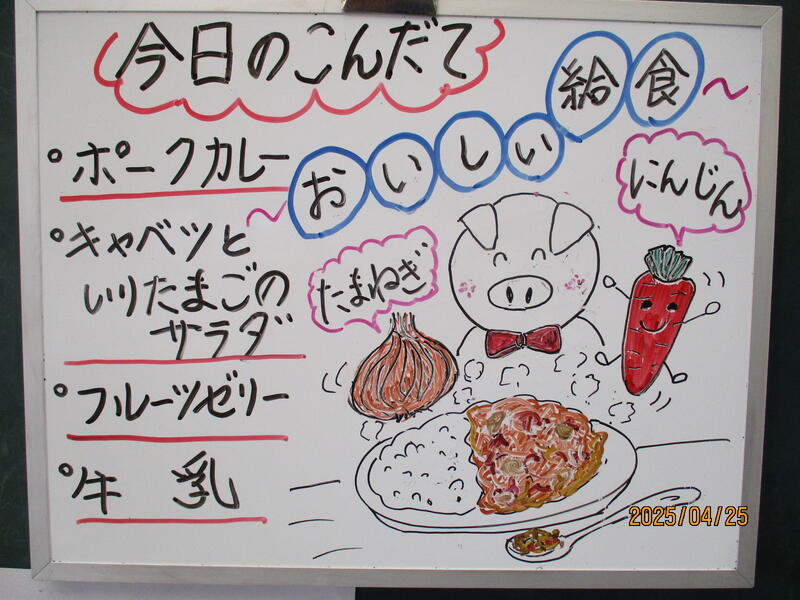 今日のこんだて
おいしい給食～
。ポークカレー
。キャベツと
いりたまごの
サラダ
。フルーツゼリー
。牛乳
たまねぎ
にんじん
2025/04/25